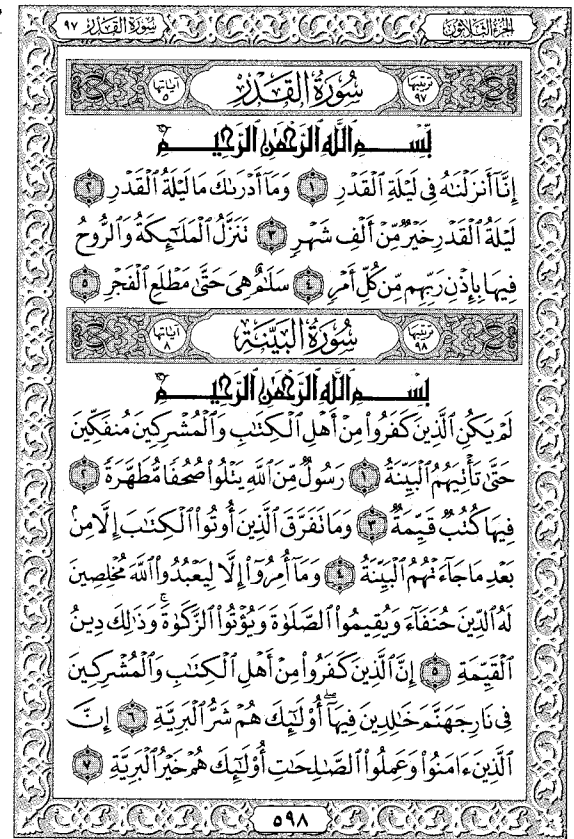 الجزء الثلاثون
سورة القدر ٩٧
ترتيبها ٩٧
سُورَةُ القَدْرِ
آياتها ٥
بِسْمِ ٱللَّهِ ٱلرَّحْمَٰنِ ٱلرَّحِيمِ
إِنَّآ أَنزَلْنَٰهُ فِى لَيْلَةِ ٱلْقَدْرِ ١ وَمَآ أَدْرَىٰكَ مَا لَيْلَةُ ٱلْقَدْرِ ٢
لَيْلَةُ ٱلْقَدْرِ خَيْرٌ مِّنْ أَلْفِ شَهْرٍ ٣ تَنَزَّلُ ٱلْمَلَٰٓئِكَةُ وَٱلرُّوحُ
فِيهَا بِإِذْنِ رَبِّهِم مِّن كُلِّ أَمْرٍ ٤ سَلَٰمٌ هِىَ حَتَّىٰ مَطْلَعِ ٱلْفَجْرِ ٥
ترتيبها ٩٨
سُورَةُ البَيِّنَةِ
آياتها ٨
بِسْمِ ٱللَّهِ ٱلرَّحْمَٰنِ ٱلرَّحِيمِ
لَمْ يَكُنِ ٱلَّذِينَ كَفَرُوا۟ مِنْ أَهْلِ ٱلْكِتَٰبِ وَٱلْمُشْرِكِينَ مُنفَكِّينَ
حَتَّىٰ تَأْتِيَهُمُ ٱلْبَيِّنَةُ ١ رَسُولٌ مِّنَ ٱللَّهِ يَتْلُوا۟ صُحُفًا مُّطَهَّرَةً ٢
فِيهَا كُتُبٌ قَيِّمَةٌ ٣ وَمَا تَفَرَّقَ ٱلَّذِينَ أُوتُوا۟ ٱلْكِتَٰبَ إِلَّا مِنۢ
بَعْدِ مَا جَآءَتْهُمُ ٱلْبَيِّنَةُ ٤ وَمَآ أُمِرُوٓا۟ إِلَّا لِيَعْبُدُوا۟ ٱللَّهَ مُخْلِصِينَ
لَهُ ٱلدِّينَ حُنَفَآءَ وَيُقِيمُوا۟ ٱلصَّلَوٰةَ وَيُؤْتُوا۟ ٱلزَّكَوٰةَ ۚ وَذَٰلِكَ دِينُ
ٱلْقَيِّمَةِ ٥ إِنَّ ٱلَّذِينَ كَفَرُوا۟ مِنْ أَهْلِ ٱلْكِتَٰبِ وَٱلْمُشْرِكِينَ
فِى نَارِ جَهَنَّمَ خَٰلِدِينَ فِيهَآ ۚ أُو۟لَٰٓئِكَ هُمْ شَرُّ ٱلْبَرِيَّةِ ٦ إِنَّ
ٱلَّذِينَ ءَامَنُوا۟ وَعَمِلُوا۟ ٱلصَّٰلِحَٰتِ أُو۟لَٰٓئِكَ هُمْ خَيْرُ ٱلْبَرِيَّةِ ٧
٥٩٨